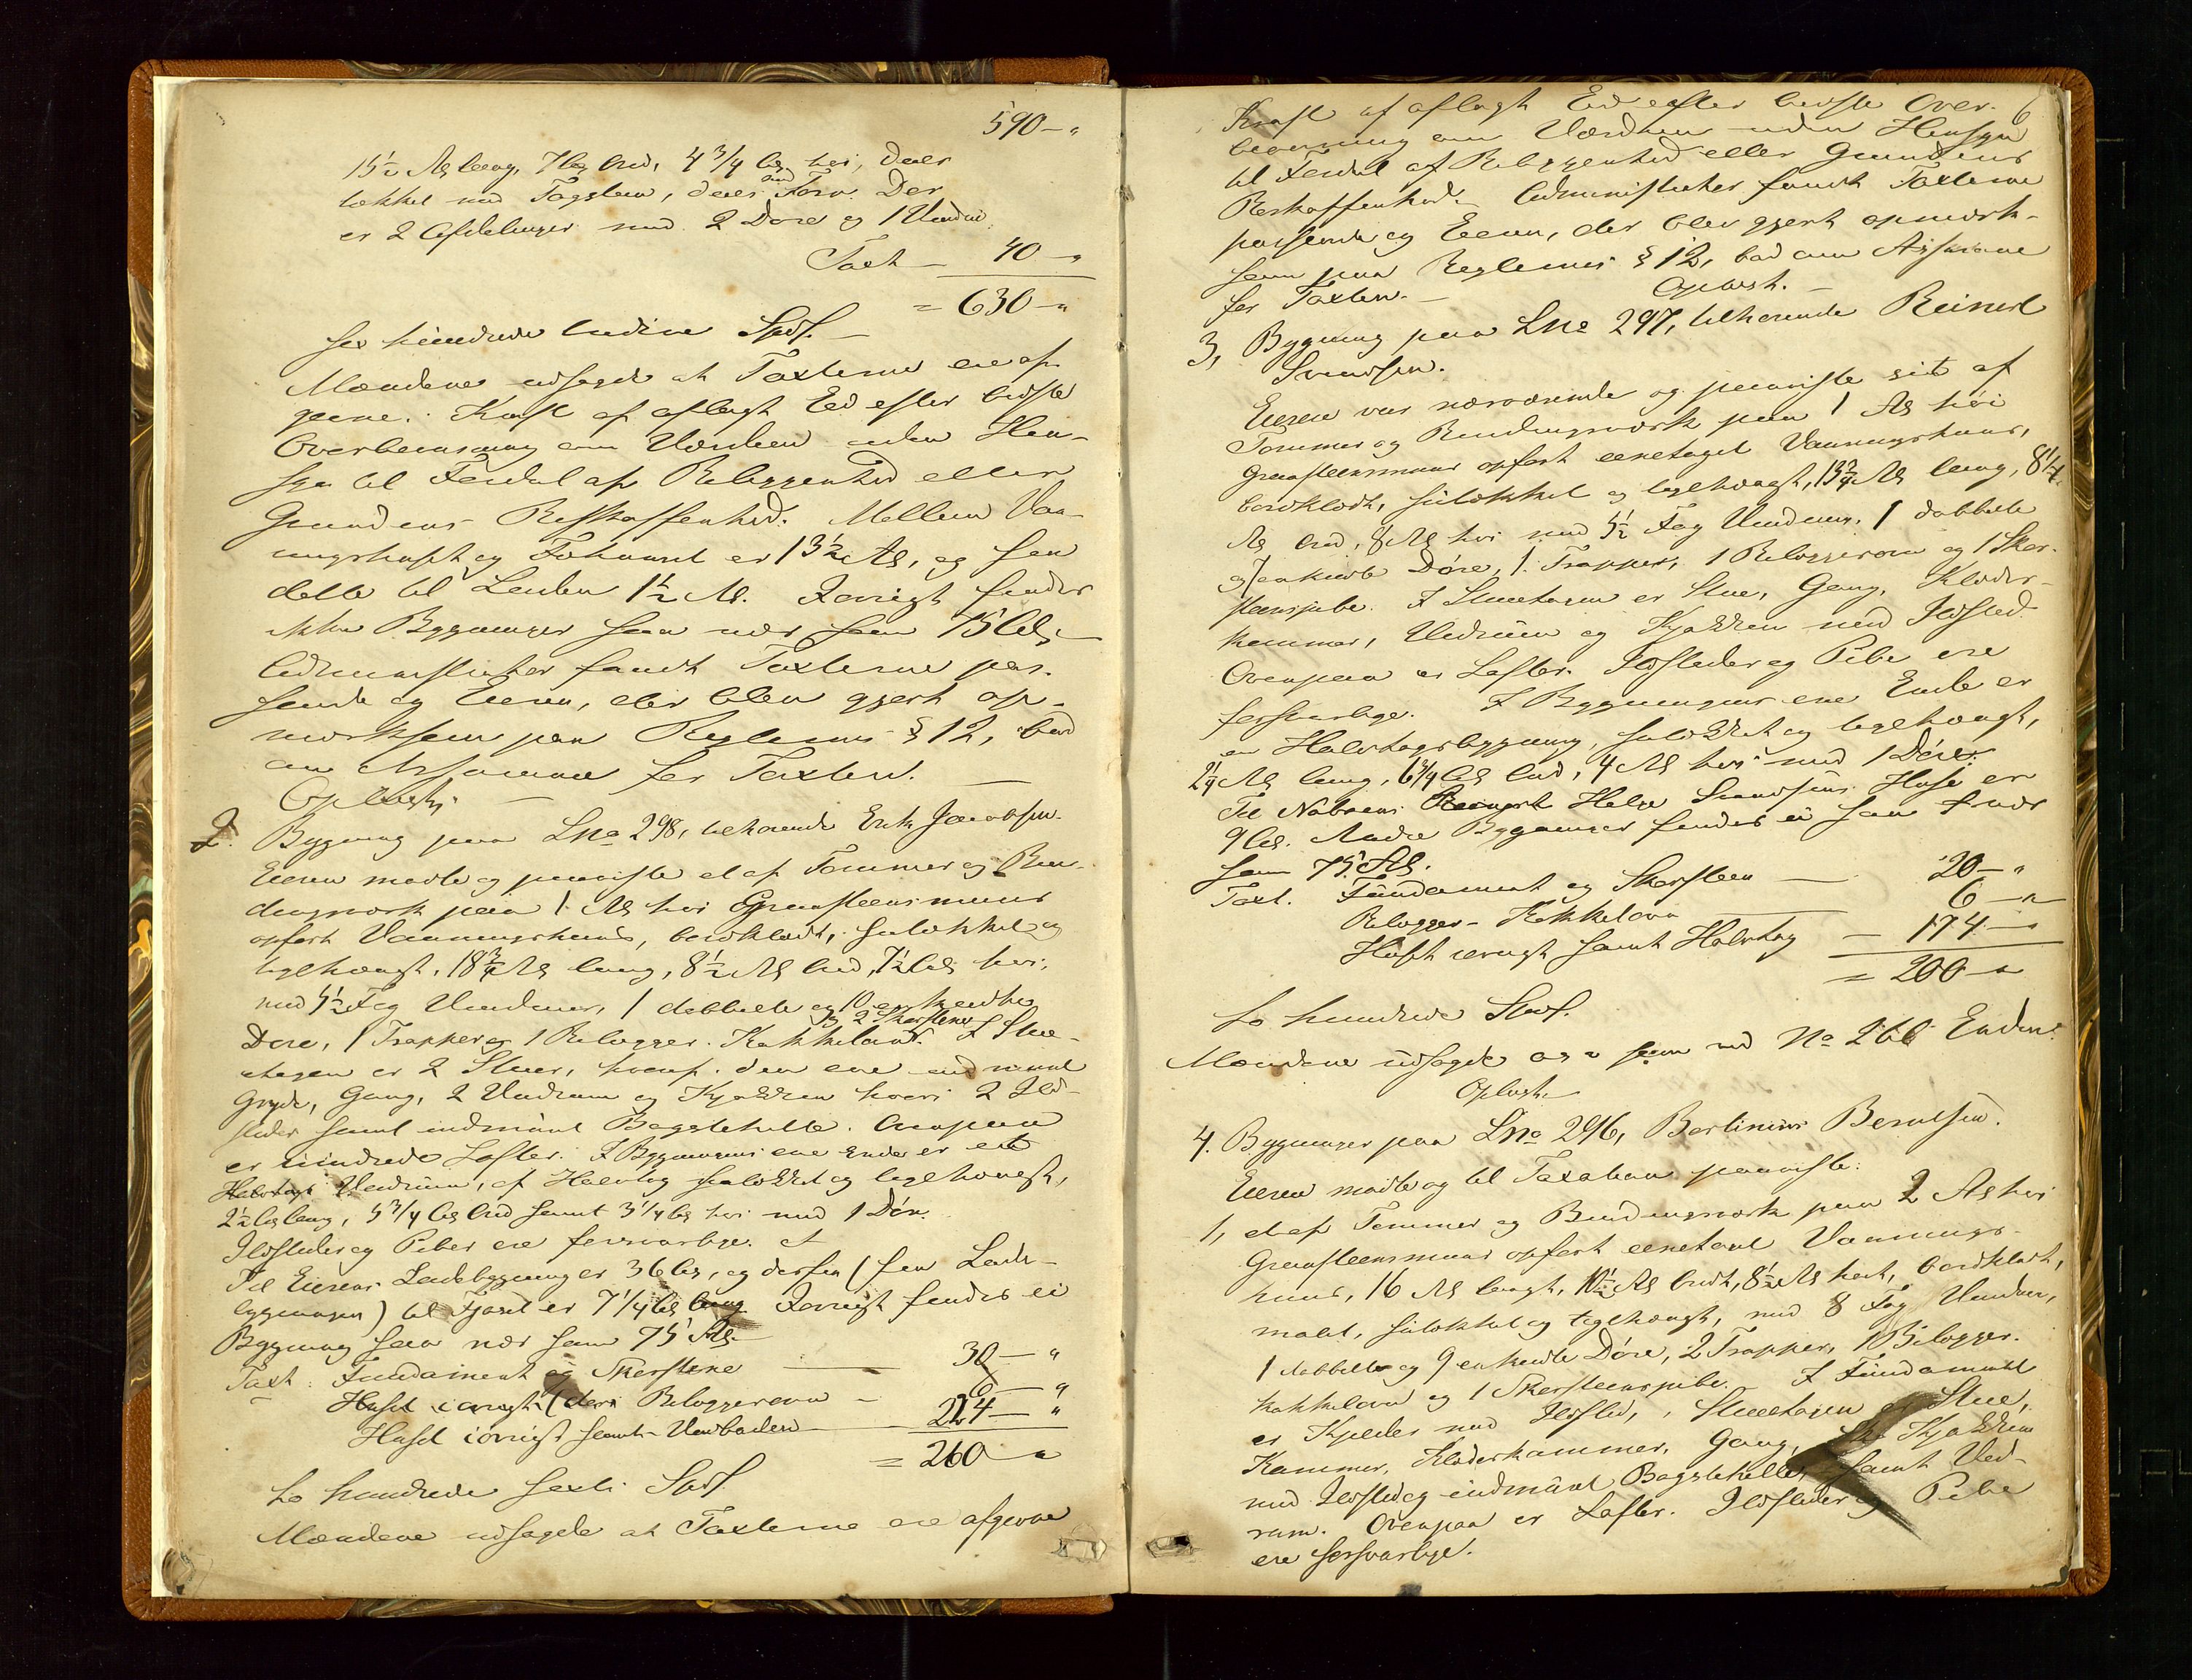 590 — "
15½ Al lang, 7 Al bred, 4 3/4 Al høi, deels
tækket med Tagsteen, deels med Torv. Der
er 2 Afdelinger med 2 Døre og 1 Vindue
Taxt — 40 — "
= 630 — "
sex hundrede tredive Spd. —
Mændene udsagde at Taxterne ere af-
givne i Kraft af aflagt Eed efter bedste
Overbeviisning om Værdien uden Hen-
syn til Fordel af Beliggenhed eller
Grundens Beskaffenhed. Mellem Vaa-
ningshuset og Føhuset er 13½ Al, og fra
dette til Laden 1½ Al. Forresten findes
ikke Bygninger saa nær som 75 Al. —
Administrator fandt Taxterne pas-
sende og Eieren, der blev gjort op-
mærksom paa Reglernes § 12, bad
om Assurance for Taxten. —
Oplæst. —
2. Bygning paa L No 298, tilhørende Erik Jacobsen.
Eieren mødte og paaviste et af Tømmer og Bin-
dingsværk paa 1 Al høi Graasteensmuur
opført Vaaningshuus, bordklædt, sutækket og
teglhængt, 18 3/4 Al lang, 8½ Al bred, 7½ Al høi,
med 5½ Fag Vinduer, 1 dobbelt og 10 enkelte
og 2 Skorstene
Døre, 1 Trappe og 1 Bilægger-Kakkelovn. I Stue-
etagen er 2 Stuer, hvoraf den ene med muret
Gryde, Gang, 2 Vedrum og Kjøkken hvori 2 Ild-
steder samt indmuret Bagstehelle. Ovenpaa
er indredede Lofter. I Bygningens ene Ende er et
Vedrum, af Halvtag sutækket og teglhængt,
2½ Al lang, 5 3/4 Al bred samt 3 1/4 Al høi med 1 Dør.
Ildsteder og Piber ere forsvarlige.
Til Eierens Ladebygning er 36 Al, og derfra (fra Lade-
bygningen) til Fjøset er 7 1/4 Al Forresten findes ei
Bygning saa nær som 75 Al.
Taxt: Fundament og Skorstene — 30 — "
Huset iøvrigt (deri Bilæggerovn — 6 — "
Huset iøvrigt samt Vedboden — 224 — "
= 260 — "
to hundrede sexti Spd.
Mændene udsagde at Taxterne ere afgivne
6
Kraft af aflagt Eed efter bedste Over-
beviisning om Værdien uden Hensyn
til Fordel af Beliggenhed eller Grundens
Beskaffenhed. Administrator fandt Taxterne
passende og Eieren, der blev gjort opmærk-
som paa Reglernes § 12, bad om Assurance
for Taxten. — Oplæst. —
3, Bygning paa L No 297, tilhørende Reinert
Svendsen.
Eieren var nærværende og paaviste sit af
Tømmer og Bindingsværk paa 1 Al høi
Graasteensmuur opført eenetages Vaaningshuus,
bordklædt, sutækket og teglhængt, 13 3/4 Al lang, 8 1/4
Al bred, 8 Al høi med 5½ Fag Vinduer, 1 dobbelt
og 7 enkelte Døre, 1 Trappe, 1 Bilæggerovn og 1 Skor-
steenspibe. I Stueetagen er Stue, Gang, Klæder-
kammer, Vedrum og Kjøkken med Ildsted.
Ovenpaa er Lofter. Ildsteder og Pibe ere
forsvarlige. I Bygningens ene Ende er
en Halvtagsbygning, sutækket og teglhængt,
2 1/4 Al lang, 6 3/4 Al bred, 4 Al høi med 1 Dør.
Til Naboens Helge Svendsens Huse er
9 Al. Andre Bygninger findes ei saa nær
som 75 Al.
Taxt. Fundament og Skorsteen — 20 — "
Bilægger-Kakkelovn — 6 — "
Huset iøvrigt samt Halvtag — 174 — "
= 200 — "
to hundrede Spd.
Mændene udsagde o. s. v. som ved No 266 Enden.
Oplæst. —
4. Bygninger paa L No 296, Bertinius Berntsen.
Eieren mødte og til Taxation paaviste:
1, et af Tømmer og Bindingsværk paa 2 Al høi
Graasteensmuur opført eenetaget Vaanings-
huus, 16 Al langt, 10½ Al bredt, 8½ Al høit, bordklædt,
malet, sutækket og teglhængt, med 8 Fag Vinduer,
1 dobbelt og 9 enkelte Døre, 2 Trapper, 1 Bilægger-
kakkelovn og 1 Skorsteenspibe. I Fundamentet
er Kjelder med Ildsted, i Stueetagen er Stue,
Kammer, Klæderkammer, Gang, Kjøkken
med Ildsted og indmuret Bagstehelle, samt Ved-
rum. Ovenpaa er Lofter. Ildsteder og Pibe
ere forsvarlige.